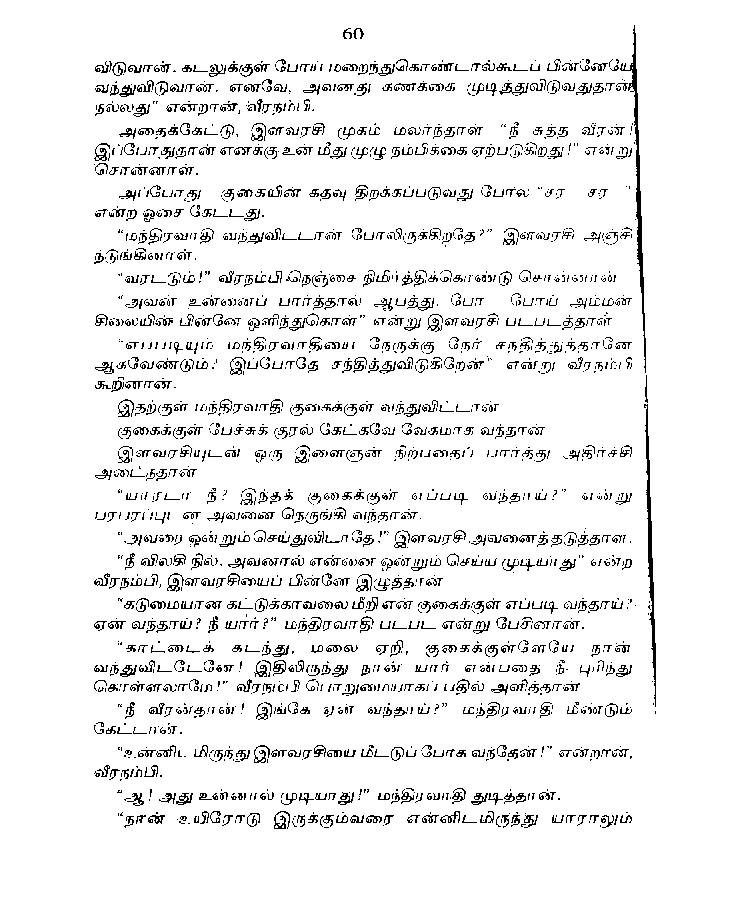 60
விடுவான். கடலுக்குள் போய் மறைந்துகொண்டால்கூடப் பின்னேயே
வந்துவிடுவான். எனவே, அவனது கணக்கை முடித்துவிடுவதுதான்
நல்லது” என்றான், வீரநம்பி.
அதைக்கேட்டு, இளவரசி முகம் மலர்ந்தாள் “நீ சுத்த வீரன்!
இப்போதுதான் எனக்கு உன் மீது முழு நம்பிக்கை ஏற்படுகிறது!” என்று
சொன்னாள்.
அப்போது குகையின் கதவு திறக்கப்படுவது போல “சர சர ”
என்ற ஓசை கேட்டது.
“மந்திரவாதி வந்துவிட்டான் போலிருக்கிறதே?” இளவரசி அஞ்சி
நடுங்கினாள்.
“வரட்டும்!” வீரநம்பி நெஞ்சை நிமிர்த்திக்கொண்டு சொன்னான்
“அவன் உன்னைப் பார்த்தால் ஆபத்து. போ போய் அம்மன்
சிலையின் பின்னே ஒளிந்துகொள்” என்று இளவரசி படபடத்தாள்
“எப்படியும் மந்திரவாதியை நேருக்கு நேர் சந்தித்துத்தானே
ஆகவேண்டும்! இப்போதே சந்தித்துவிடுகிறேன்” என்று வீரநம்பி
கூறினான்.
இதற்குள் மந்திரவாதி குகைக்குள் வந்துவிட்டான்
குகைக்குள் பேச்சுக் குரல் கேட்கவே வேகமாக வந்தான்
இளவரசியுடன் ஒரு இளைஞன் நிற்பதைப் பார்த்து அதிர்ச்சி
அடைந்தான்
“யாரடா நீ? இந்தக் குகைக்குள் எப்படி வந்தாய்?” என்று
பரபரப்புடன் அவனை நெருங்கி வந்தான்.
“அவரை ஒன்றும் செய்துவிடாதே!” இளவரசி அவனைத் தடுத்தாள்.
“நீ விலகி நில். அவனால் என்னை ஒன்றும் செய்ய முடியாது” என்ற
வீரநம்பி, இளவரசியைப் பின்னே இழுத்தான்
“கடுமையான கட்டுக்காவலை மீறி என் குகைக்குள் எப்படி வந்தாய்?
ஏன் வந்தாய்? நீ யார்?” மந்திரவாதி படபட என்று பேசினான்.
“காட்டைக் கடந்து, மலை ஏறி, குகைக்குள்ளேயே நான்
வந்துவிட்டேனே! இதிலிருந்து நான் யார் என்பதை நீ புரிந்து
கொள்ளலாமே!” வீரநம்பி பொறுமையாகப் பதில் அளித்தான்
“நீ வீரன்தான்! இங்கே ஏன் வந்தாய்?” மந்திரவாதி மீண்டும்
கேட்டான்.
“உன்னிடமிருந்து இளவரசியை மீட்டுப் போக வந்தேன்!” என்றான்,
வீரநம்பி.
“ஆ! அது உன்னால் முடியாது!” மந்திரவாதி துடித்தான்.
“நான் உயிரோடு இருக்கும்வரை என்னிடமிருந்து யாராலும்